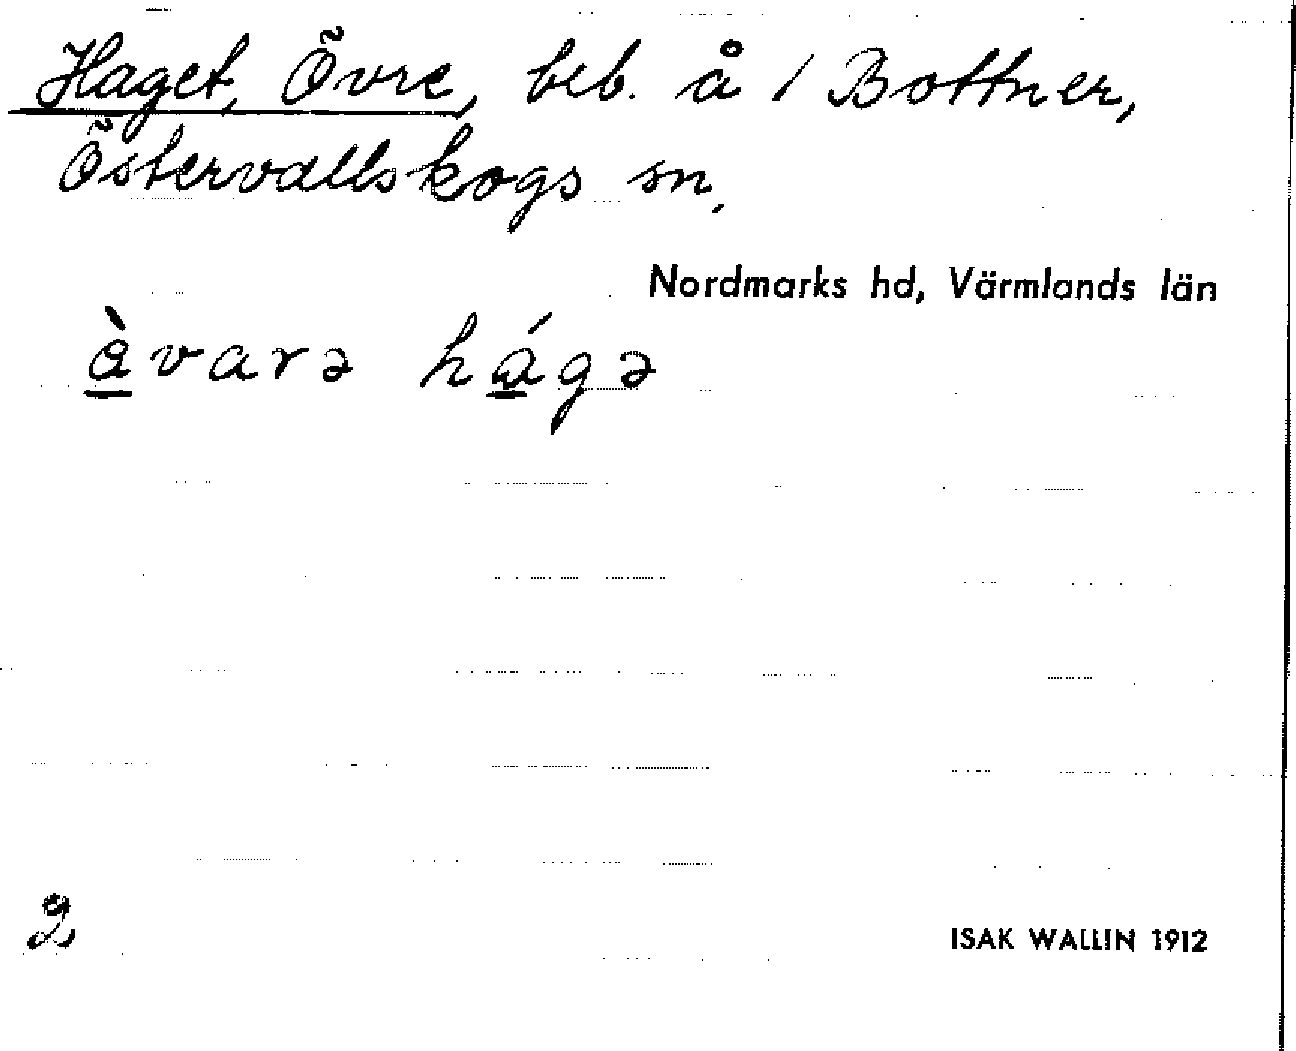 Haget, Övre, beb. å 1 Bottner,
Östervallskogs sn,
Nordmarks hd, Värmlands län
à̱varə há̱gə
2
ISAK WALLIN 1912